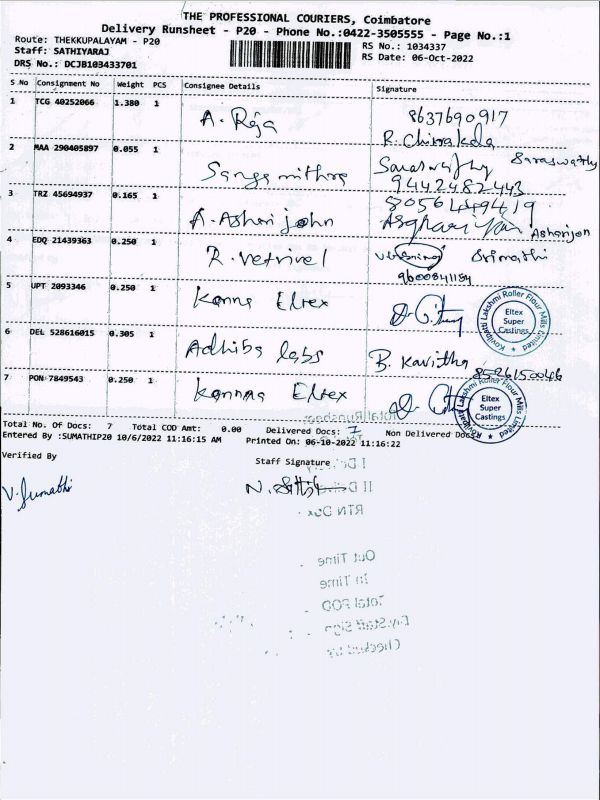 THE PROFESSIONAL COURIERS, Coimbatore
Delivery Runsheet - P20 - Phone No.:0422-3505555 - Page No.:1
Route: THEKKUPALAYAM - P20
RS No.: 1034337
Staff: SATHIYARAJ
RS Date: 06-Oct-2022
DRS No.: DCJB103433701
S No Consignment No Weight PCS Consignee Details Signature
1 TCG 40252066 1.380 1 A. Raja 8637690917
R. Chinnakda
2 MAA 290405897 0.055 1 Sangamithra Saraswathy Saraswathy
9442482443
3 TRZ 45694937 0.165 1 A. Asharijohn 8056149419
Asharijon
4 EDQ 21439363 0.250 1 R. vetrivel Srimathi
9600841184
5 UPT 2093346 0.250 1 Kanna Eltex
Kovilpatti Lakshmi Roller Flour Mills Limited
Eltex
Super
Castings
6 DEL 528616015 0.305 1 Adhiba labs B. Kavitha
8526150046
7 PON 7849543 0.250 1 Kanna Eltex
Kovilpatti Lakshmi Roller Flour Mills Limited
Eltex
Super
Castings
Total No. Of Docs: 7 Total COD Amt: 0.00 Delivered Docs: 7 Non Delivered Docs:
Entered By :SUMATHIP20 10/6/2022 11:16:15 AM Printed On: 06-10-2022 11:16:22
Verified By Staff Signature
V. Sumathi
Total Runsheet
I Delivery
II Delivery
RTN Dox
Out Time
In Time
Total POD
Dly.Staff Sign
Checked by